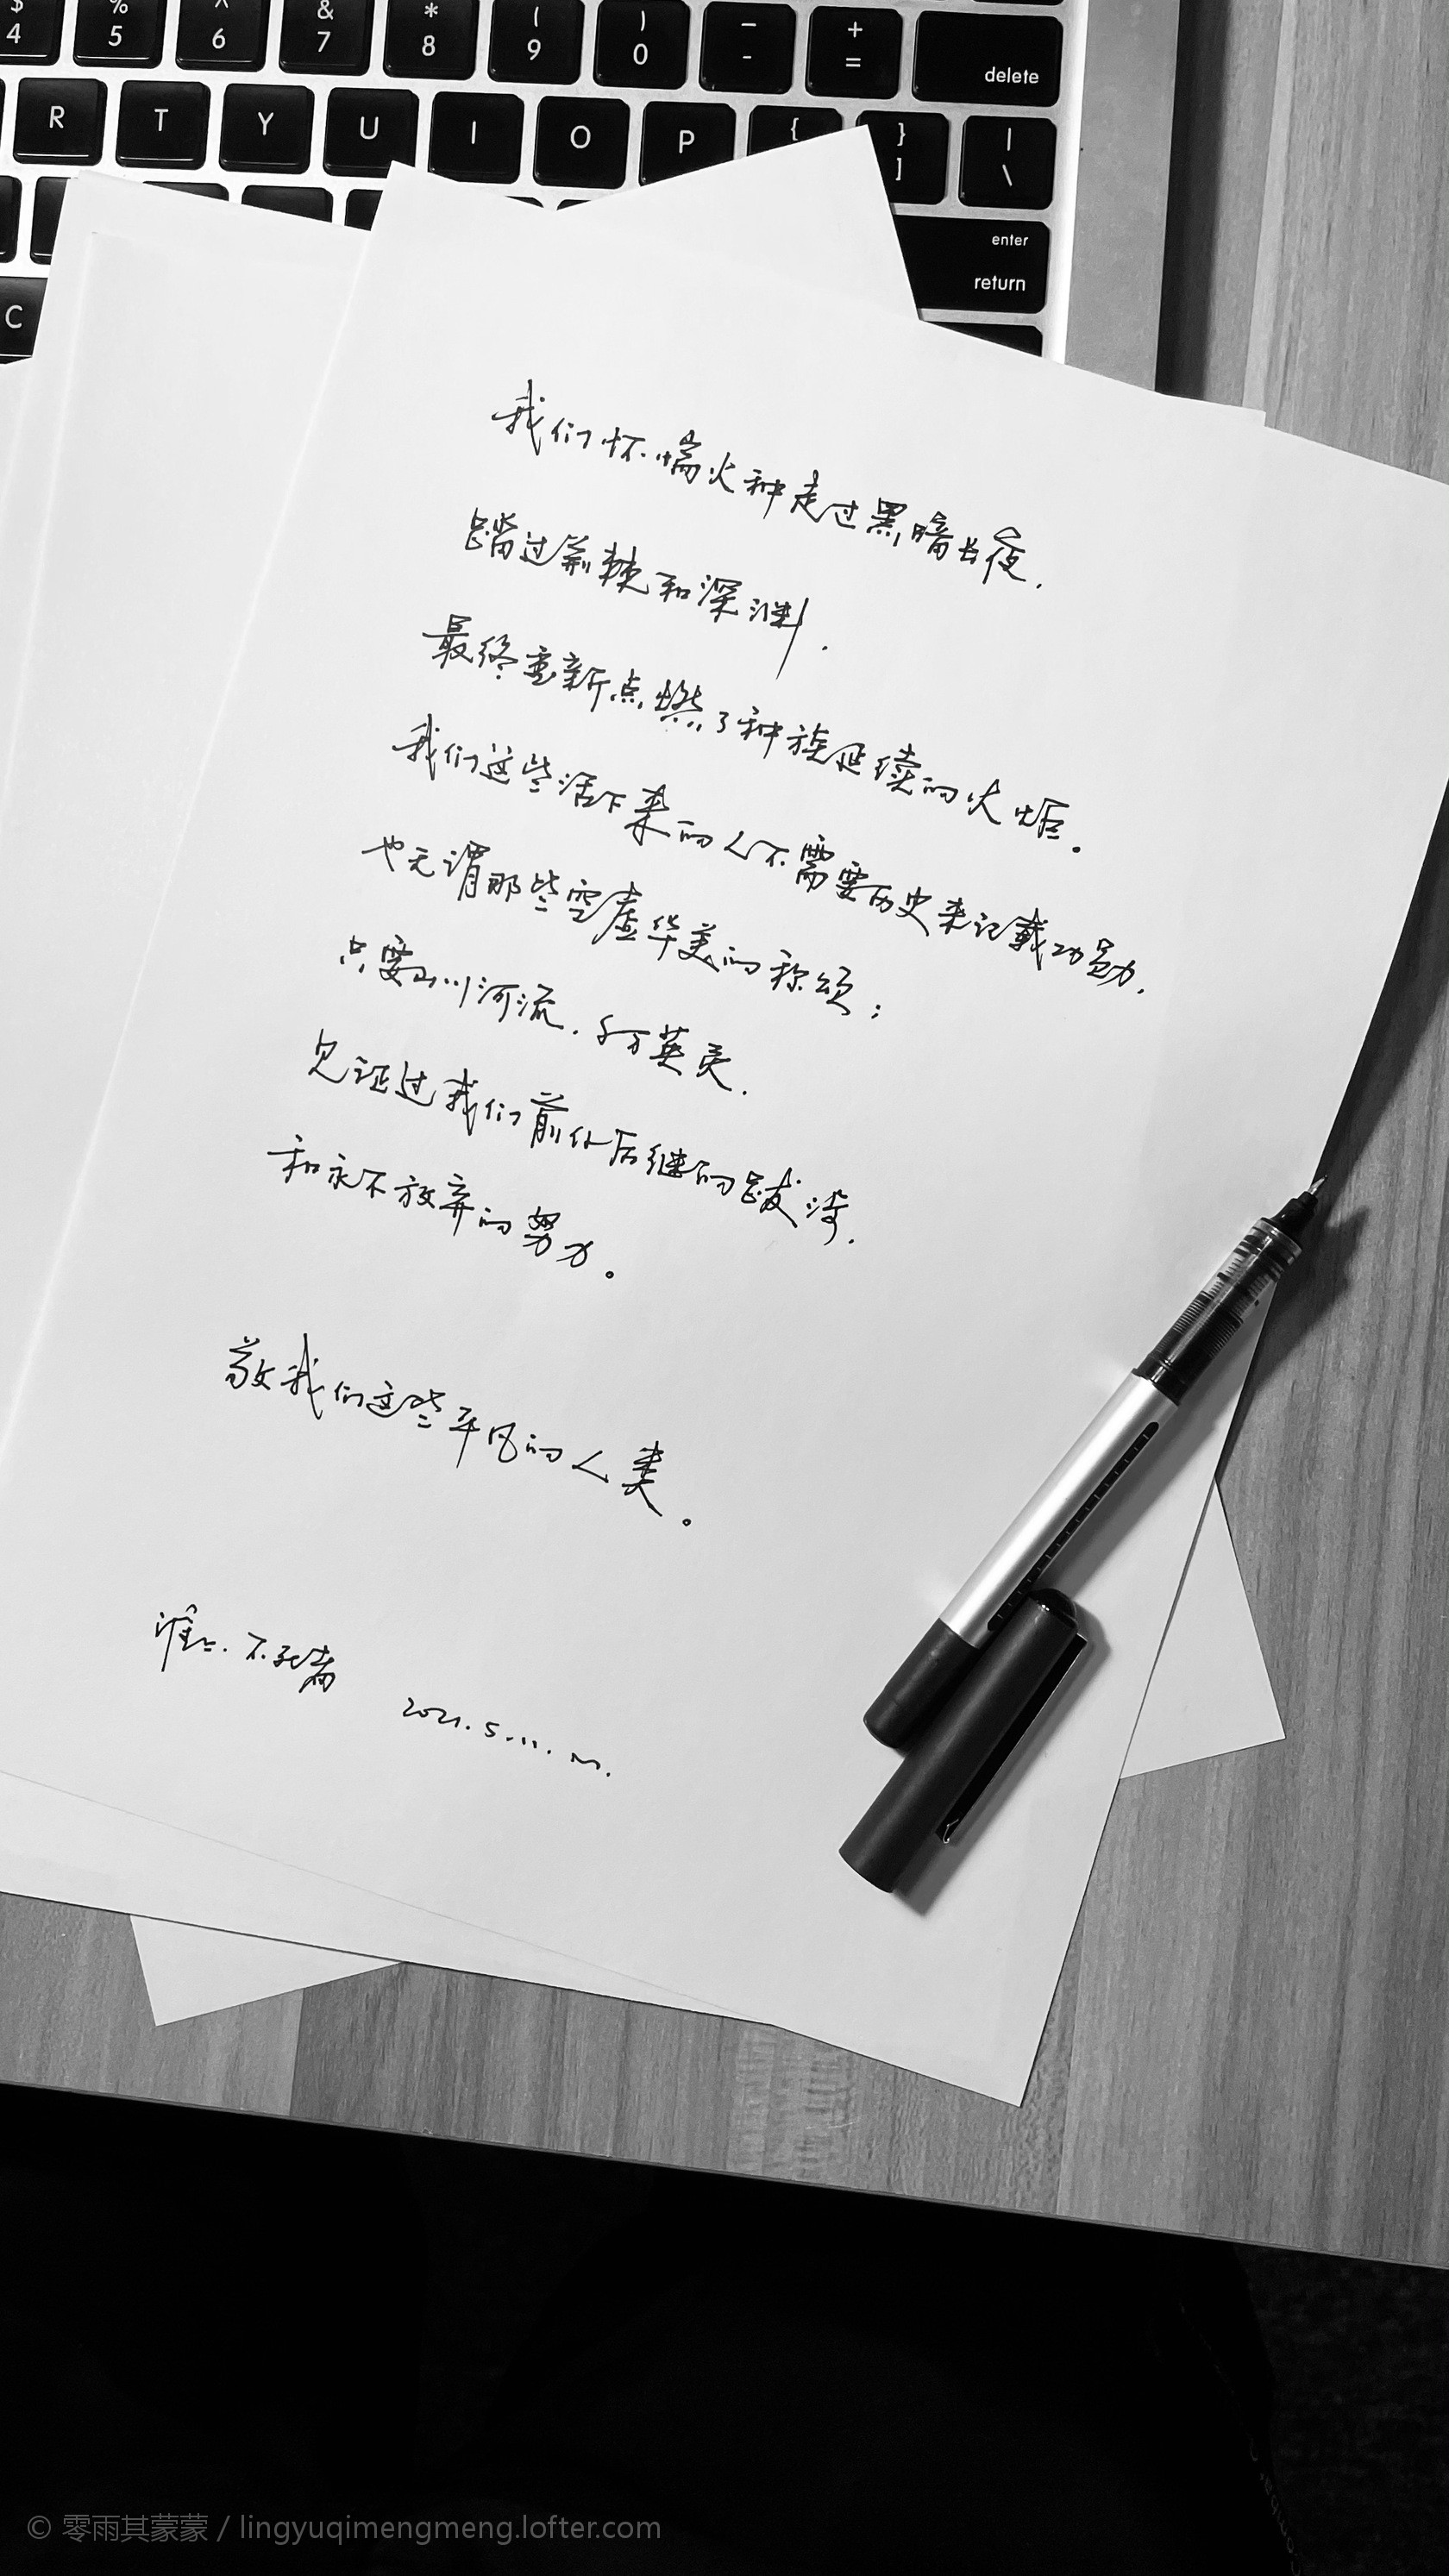 $ % ^ & * ( ) — +
4 5 6 7 8 9 0 - = delete
R T Y U I O P { } |
] \
enter
return
C
我们怀揣火种走过黑暗长夜,
踏过荆棘和深渊,
最终重新点燃了种族延续的火炬。
我们这些活下来的人不需要历史来记载功勋,
也无谓那些空虚华美的称颂;
只要山川河流,千万英灵,
见证过我们前仆后继的跋涉,
和永不放弃的努力。
敬我们这些平凡的人类。
淮上. 不死者
2021. 5. 11. M.
© 零雨其蒙蒙 / lingyuqimengmeng.lofter.com